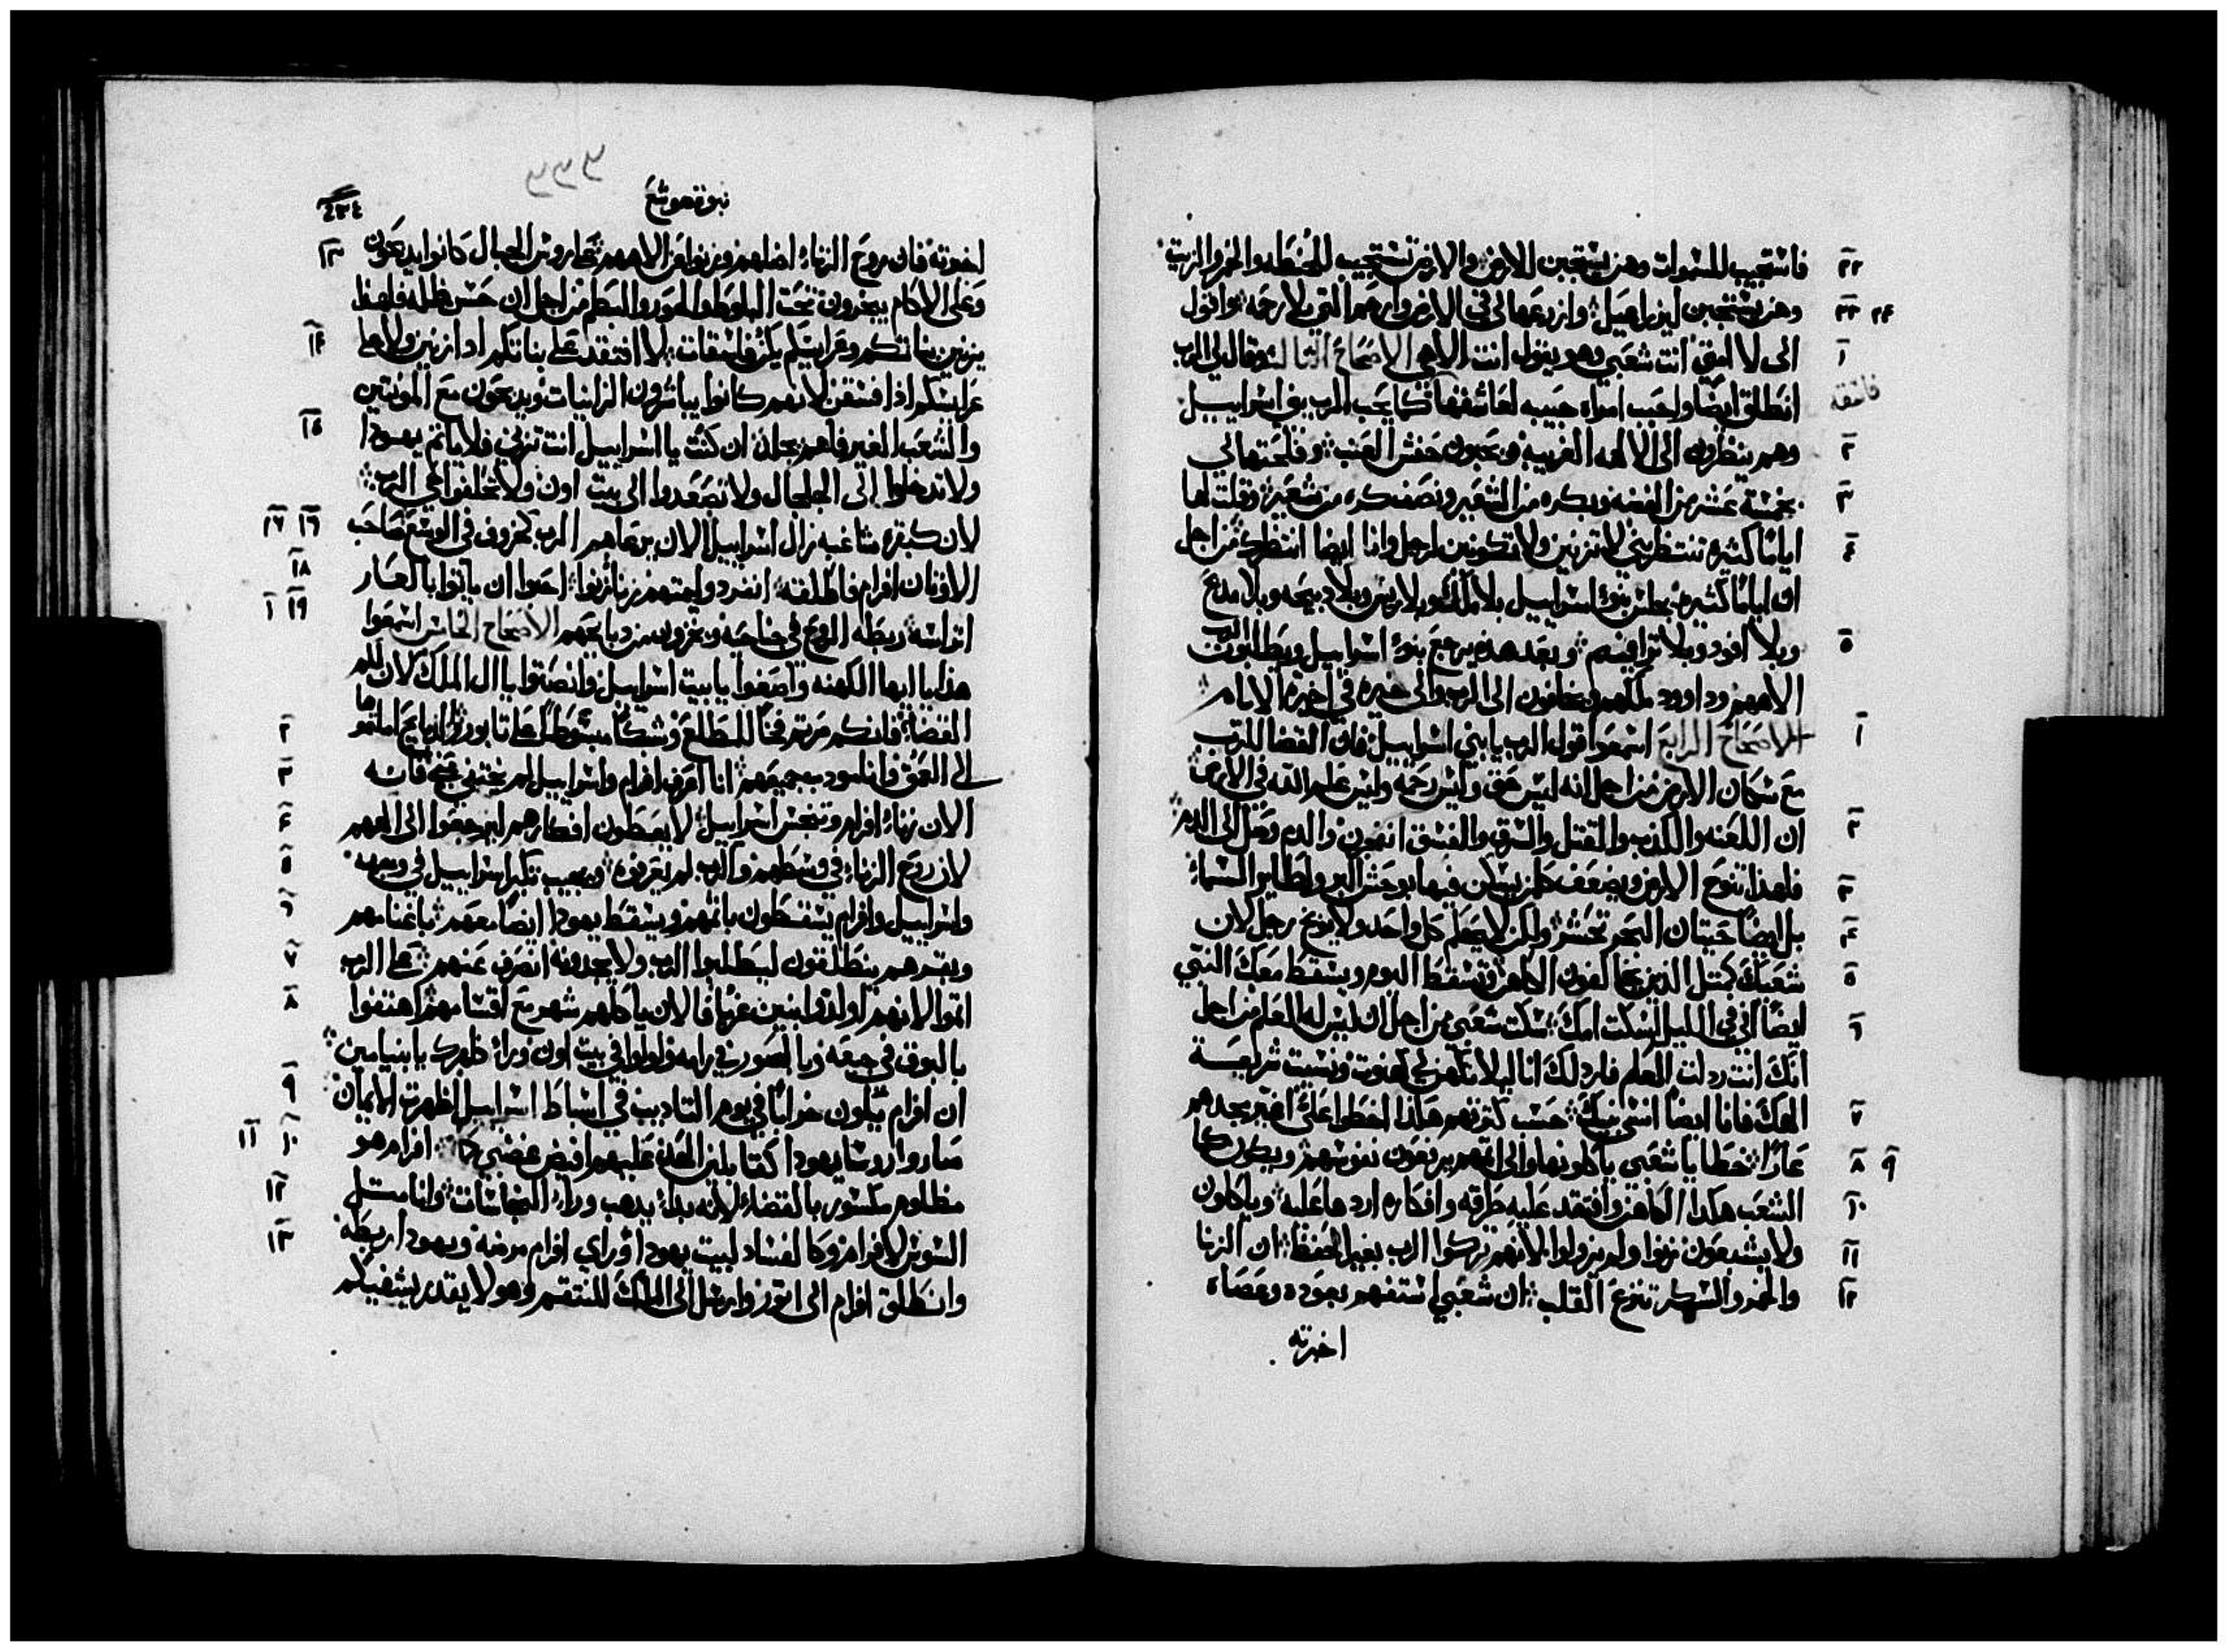 فاستجيب للسموات وهن يستجبن للارض والارض تستجيب للحنطه والخمر والزيت
وهن يستجبن ليزراعيل وازرعها لي في الارض وارحم التي بلا رحمه واقول
الى لا امتي انت شعبي وهو يقول انت الاهي الاصحاح الثالث وقال لي الرب
انطلق ايضا واحبب امراه حبيبه لعاشقها كما يحب الرب بني اسراييل
وهم ينظرون الى الالهه الغريبه ويحبون العنب وفلحتها لي
بخمسة عشر من الفضه وبكره من الشعير ونصف كره من شعير وقلت لها
اياما كثيره تنتظريني لا تزنين ولا تكونين لرجل وانا ايضا انتظرك من اجل
ان اياما كثيره يجلس بنو اسراييل بلا ملك وبلا ريس وبلا دبيحه وبلا مدبح
وبلا افود وبلا ترافيم وبعد هذه يرجع بنو اسراييل ويطلبون الرب
الاههم وداوود ملكهم ويخافون الى الرب والى خيره في اخيرة الايام
الاصحاح الرابع اسمعوا قول الرب يا بني اسراييل فان القضا للرب
مع سكان الارض من اجل انه ليس حق وليس رحمه وليس علم الله في الارض
ان اللعنه والكذب والقتل والسرق والفسق والدم وصل الى الدم
فلهذا تنوح الارض ويضعف كل من يسكن فيها بوحش البر وطاير السماء
بل ايضا حيتان البحر تحشر ولكن لا يحكم كل واحد ولا يوبخ رجل لان
شعبك كمثل الذين يخالفون الكاهن وتسقط اليوم ويسقط معك النبي
ايضا في الليل اسكت امك سكت شعبي من اجل ان ليس له العلم من اجل
انك انت ردلت العلم فاردلك انا ليلا تكهن لي ونسيت شريعة
الهك فانا ايضا انسى بنيك حسب كثرتهم هكذا اخطوا علي اغير مجدهم
عارا خطايا شعبي ياكلونها والى اثمهم يرفعون نفوسهم ويكون كما
الشعب هكذا الكاهن وافتقد عليه طرقه وافكاره اردها عليه وياكلون
ولا يشبعون زنوا ولم يزولوا لانهم تركوا الرب بغير الحفظ ان الزنا
والخمر والسكر تنزع القلب ان شعبي استفهم بعوده وعصاه
اخبرته
نبوة هوشع
٤٣٤
اخبرته فان روح الزناء اضلهم وزنوا عن الاههم على روس الجبال كانوا يدبحون
وعلى الاكام يبخرون تحت البلوط واللور والبطم من اجل ان حسن ظله فلهذا
يزنين بناتكم وعرايسكم يكن فاسقات لا افتقد على بناتكم اذا زنين ولا على
عرايسكم اذا فسقن لانهم كانوا يباشرون الزانيات ويدبحون مع الموبتين
والشعب الغير فاهم ان كنت يا اسراييل انت تزني فلا ياثم يهودا
ولا تدخلوا الى الجلجال ولا تصعدوا الى بيت اون ولا تحلفوا حي الرب
لان كبقره مشاغبه زال اسراييل الان يرعاهم الرب كخروف في الوسع صاحب
الاوثان افرام فاطلقه انفرد وليمتهم زنا زنوا احبوا ان ياتوا بالعار
اتراسه ربطه الروح في جناحه ويخزون من دبايحهم الاصحاح الخامس اسمعوا
هذا يا ايها الكهنه واصغوا يا بيت اسراييل وانصتوا يا ال الملك لان لكم
القضاء فانكم صرتم فخا للمطلع وشبكا مبسوطا على تابور والدبايح املتموها
الى العمق وانا مودب جميعهم انا اعرف افرام واسراييل لم يختبي عني فانه
الان زناء افرام وتنجس اسراييل لا يعطون افكارهم ليرجعوا الى الههم
لان روح الزناء في وسطهم والرب لم يعرفوه ويجيب تكبر اسراييل في وجهه
واسراييل وافرام يسقطون باثمهم ويسقط يهودا ايضا معهم باغنامهم
وبقرهم ينطلقون ليطلبوا الرب ولا يجدونه انصرف عنهم على الرب
اثموا لانهم اولدوا بنين غربا فالان ياكلهم شهر مع اقسامهم اهتفوا
بالبوق في جبعه وبالصور في رامه ولولوا في بيت اون وراء ظهرك يا بنيامين
ان افرام يكون خرابا في يوم التاديب في اسباط اسراييل اظهرت الايمان
صاروا روسا يهودا كنا يلين الحد عليهم افيض غضبي كما افرام هو
مظلوم مكسور بالقضاء لانه بدا يدهب وراء النجاسات وانا مثل
السوس لافرام وكالفساد لبيت يهودا وراي افرام مرضه ويهودا ربطه
وانطلق افرام الى اتور وارسل الى الملك المنتقم وهو لا يقدر يشفيكم